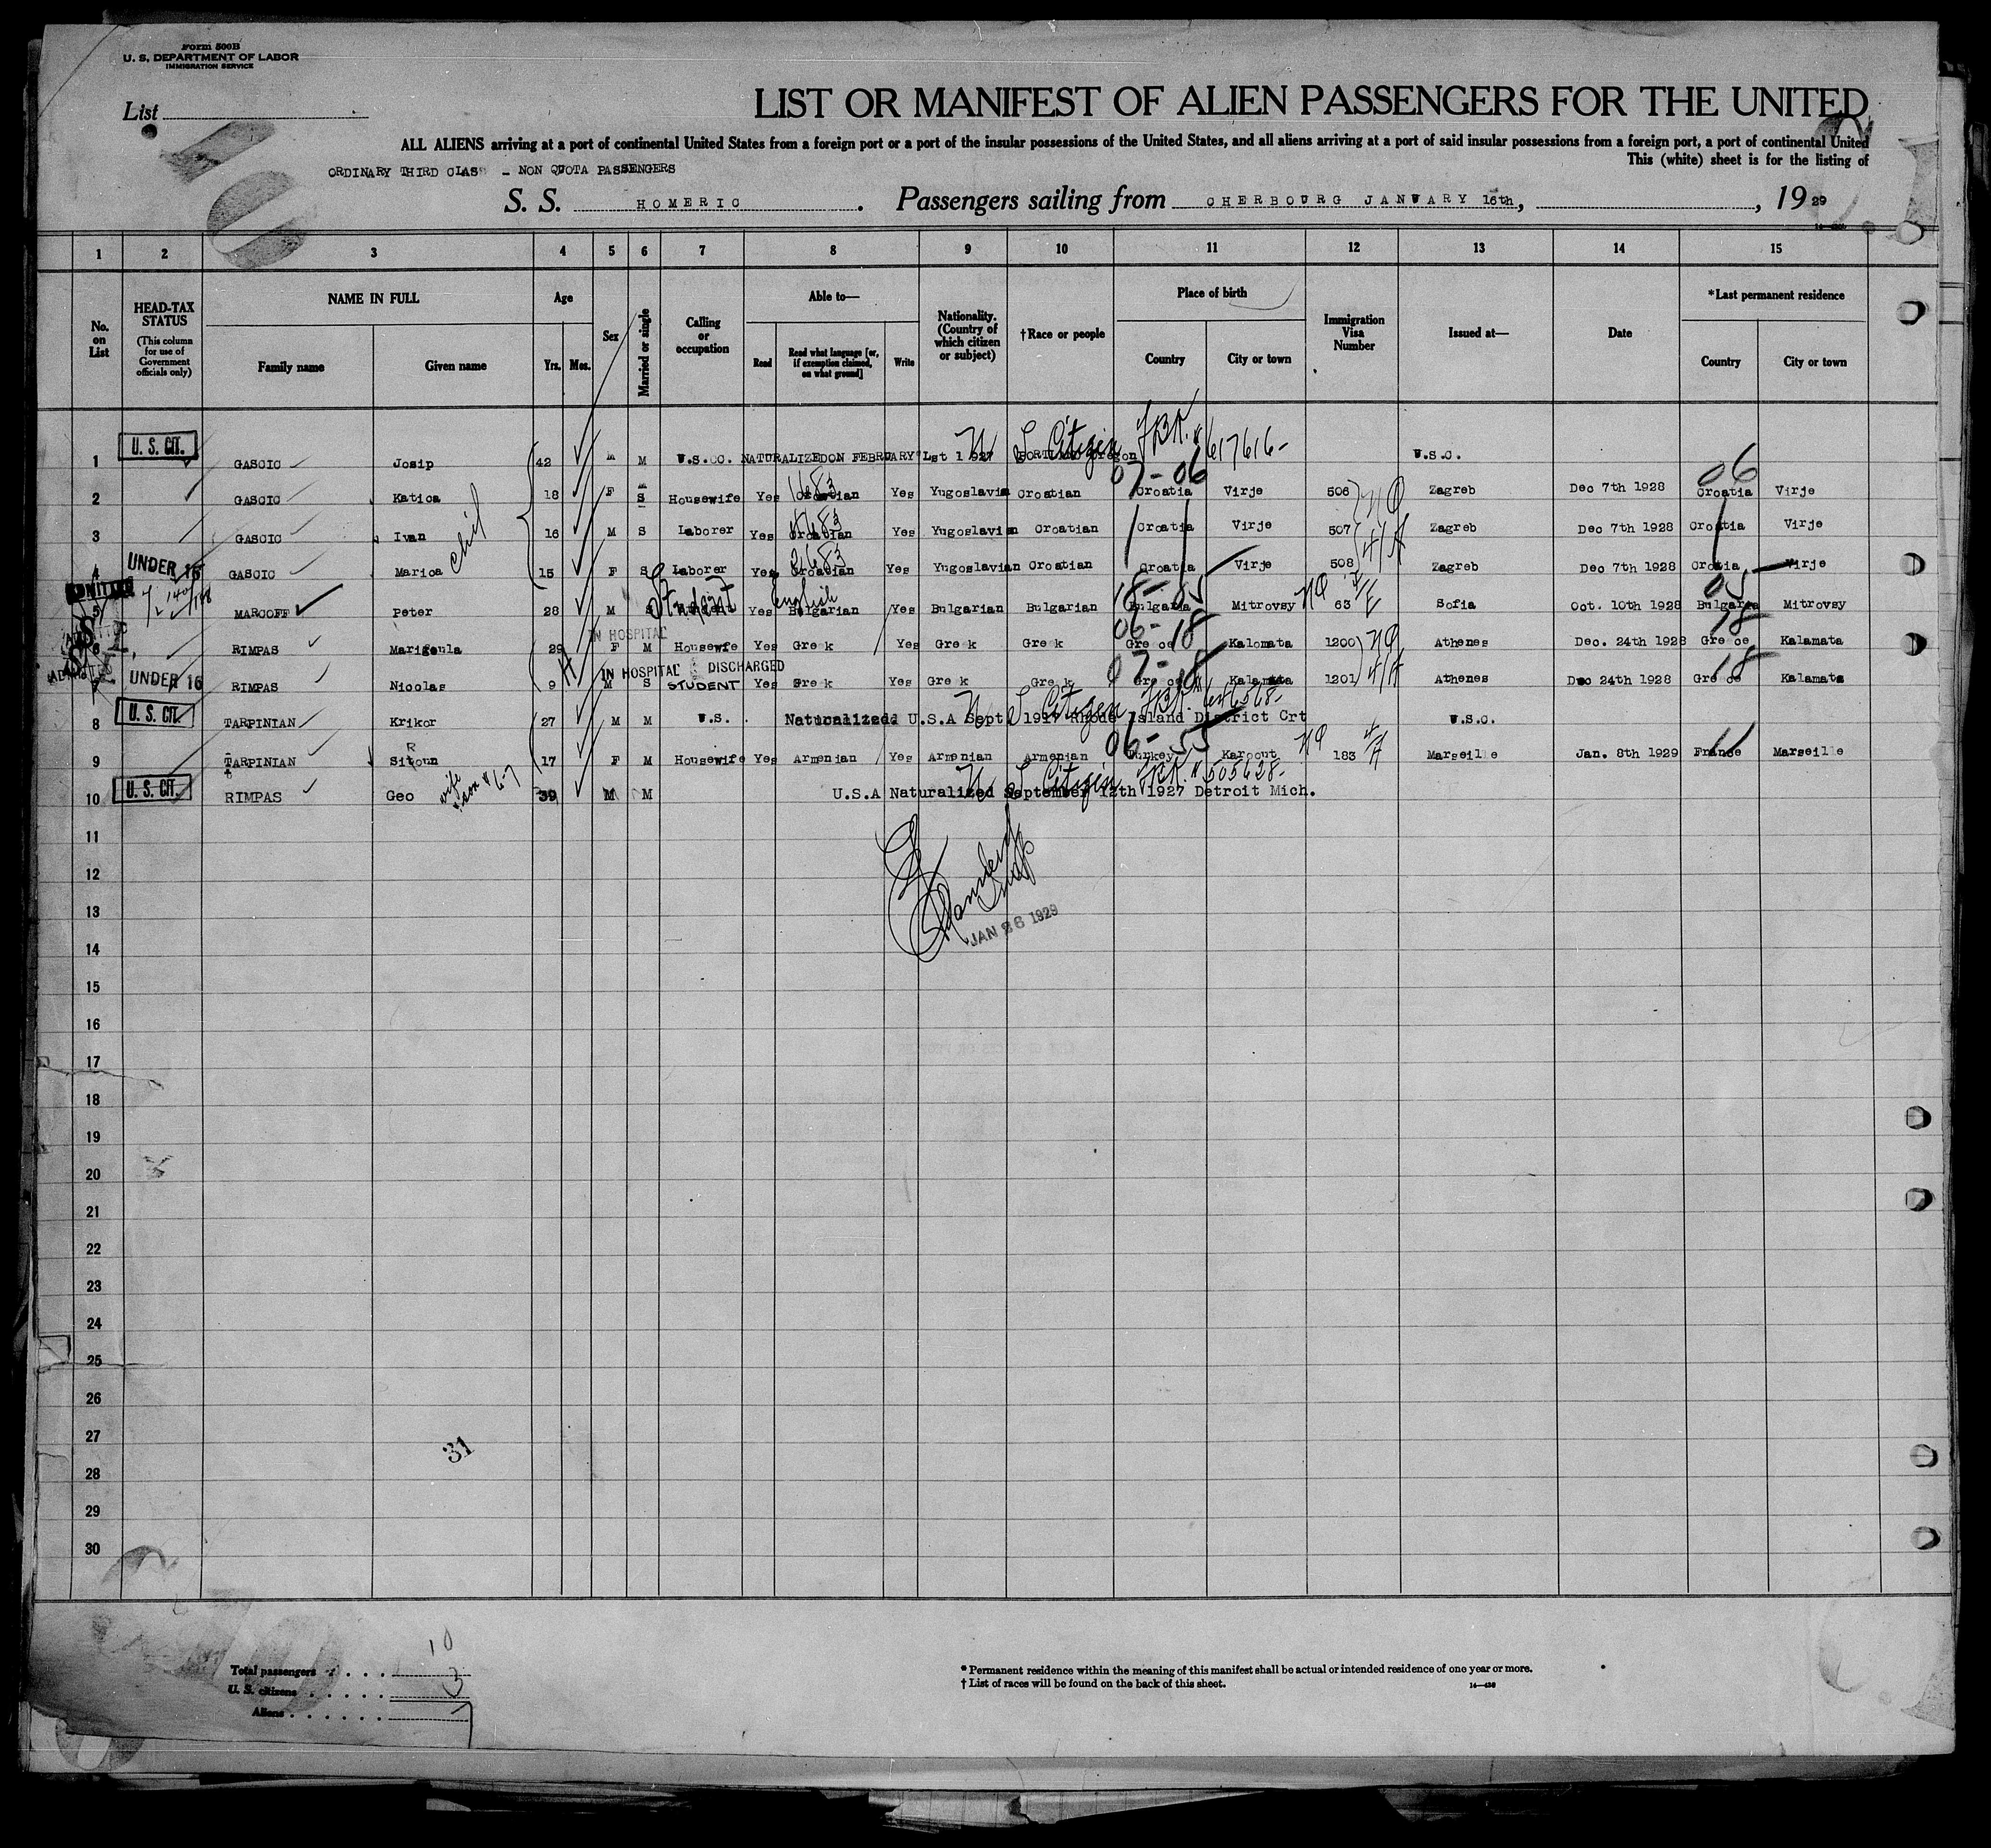 Form 500B
U. S. DEPARTMENT OF LABOR
IMMIGRATION SERVICE
List
LIST OR MANIFEST OF ALIEN PASSENGERS FOR THE UNITED
ALL ALIENS arriving at a port of continental United States from a foreign port or a port of the insular possessions of the United States, and all aliens arriving at a port of said insular possessions from a foreign port, a port of continental United
This (white) sheet is for the listing of
10
ORDINARY THIRD CLASS - NON QUOTA PASSENGERS
S. S. HOMERIC . Passengers sailing from CHERBOURG JANUARY 16th, , 19 29
1 2 3 4 5 6 7 8 9 10 11 12 13 14 15
No. on List
HEAD-TAX STATUS (This column for use of Government officials only)
NAME IN FULL Family name Given name
Age Yrs. Mos.
Sex
Married or single
Calling or occupation
Able to— Read Read what language [or, if exemption claimed, on what ground] Write
Nationality. (Country of which citizen or subject)
†Race or people
Place of birth Country City or town
Immigration Visa Number
Issued at—
Date
*Last permanent residence Country City or town
1 U. S. CIT. GASCIC Josip 42 M M U.S.CC. NATURALIZEDON FEBRUARY 1st 1927 PORTLAND Oregon U S Citizen 617616- U.S.C.
2 GASCIC Katica 18 F S Housewife Yes Croatian Yes Yugoslavia Croatian 07-06 Croatia Virje 506 Zagreb Dec 7th 1928 06 Croatia Virje
3 GASCIC Ivan 16 M S Laborer Yes Croatian Yes Yugoslavian Croatian Croatia Virje 507 Zagreb Dec 7th 1928 Croatia Virje
4 UNDER 16 GASCIC Marica 15 F S Laborer Yes Croatian Yes Yugoslavian Croatian Croatia Virje 508 Zagreb Dec 7th 1928 Croatia Virje
ADMITTED
5 MARCOFF Peter 28 M S Student Yes English Bulgarian Yes Bulgarian Bulgarian 18-05 Bulgaria Mitrovsy NQ 63 Sofia Oct. 10th 1928 05 Bulgaria Mitrovsy
IN HOSPITAL
6 RIMPAS Marigoula 29 F M Housewfe Yes Greek Yes Greek Greek 06-18 Greece Kalomata 1200 NQ Athenes Dec. 24th 1928 18 Greece Kalamata
IN HOSPITAL DISCHARGED
7 UNDER 16 RIMPAS Nicolas 9 M S STUDENT Yes Greek Yes Greek Greek 07-18 Greece Kalamata 1201 Athenes Dec 24th 1928 18 Greece Kalamata
8 U. S. CIT. TARPINIAN Krikor 27 M M U.S. Naturalized U.S.A Sept. 1917 Rhode Island District Crt U S Citizen 646568- U.S.C.
9 TARPINIAN Sitoun 17 F M Housewife Yes Armenian Yes Armenian Armenian 06-55 Turkey Karpout NQ 183 Marseille Jan. 8th 1929 France Marseille
wife & son # 6-7
10 U. S. CIT. RIMPAS Geo 39 M M U.S.A Naturalized September 12th 1927 Detroit Mich. U S Citizen 505628-
11
12
13
JAN 26 1929
14
15
16
17
18
19
20
21
22
23
24
25
26
27
31
28
29
30
Total passengers 10
U. S. citizens 3
Aliens 7
* Permanent residence within the meaning of this manifest shall be actual or intended residence of one year or more.
† List of races will be found on the back of this sheet.